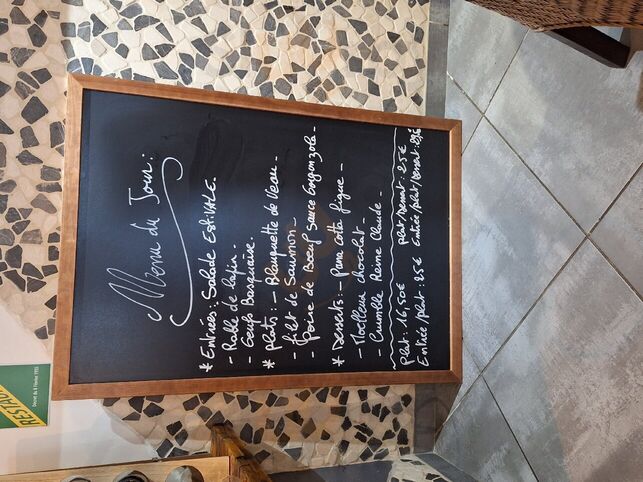 Menu du Jour:
* Entrées: Salade ESTIVALE.
- Rable de lapin.
- Oeufs Basquaise.
* Plats: - Blanquette de Veau -
- filet de Saumon -
- Poire de Boeuf Sauce Gorgonzola -
* Desserts: - Pana cotta figue -
- Moelleux chocolat -
- Crumble Reine Claude -
Plat: 16,50€ plat/dessert: 25€
Entrée/plat: 25€ Entrée/plat/dessert: 29€